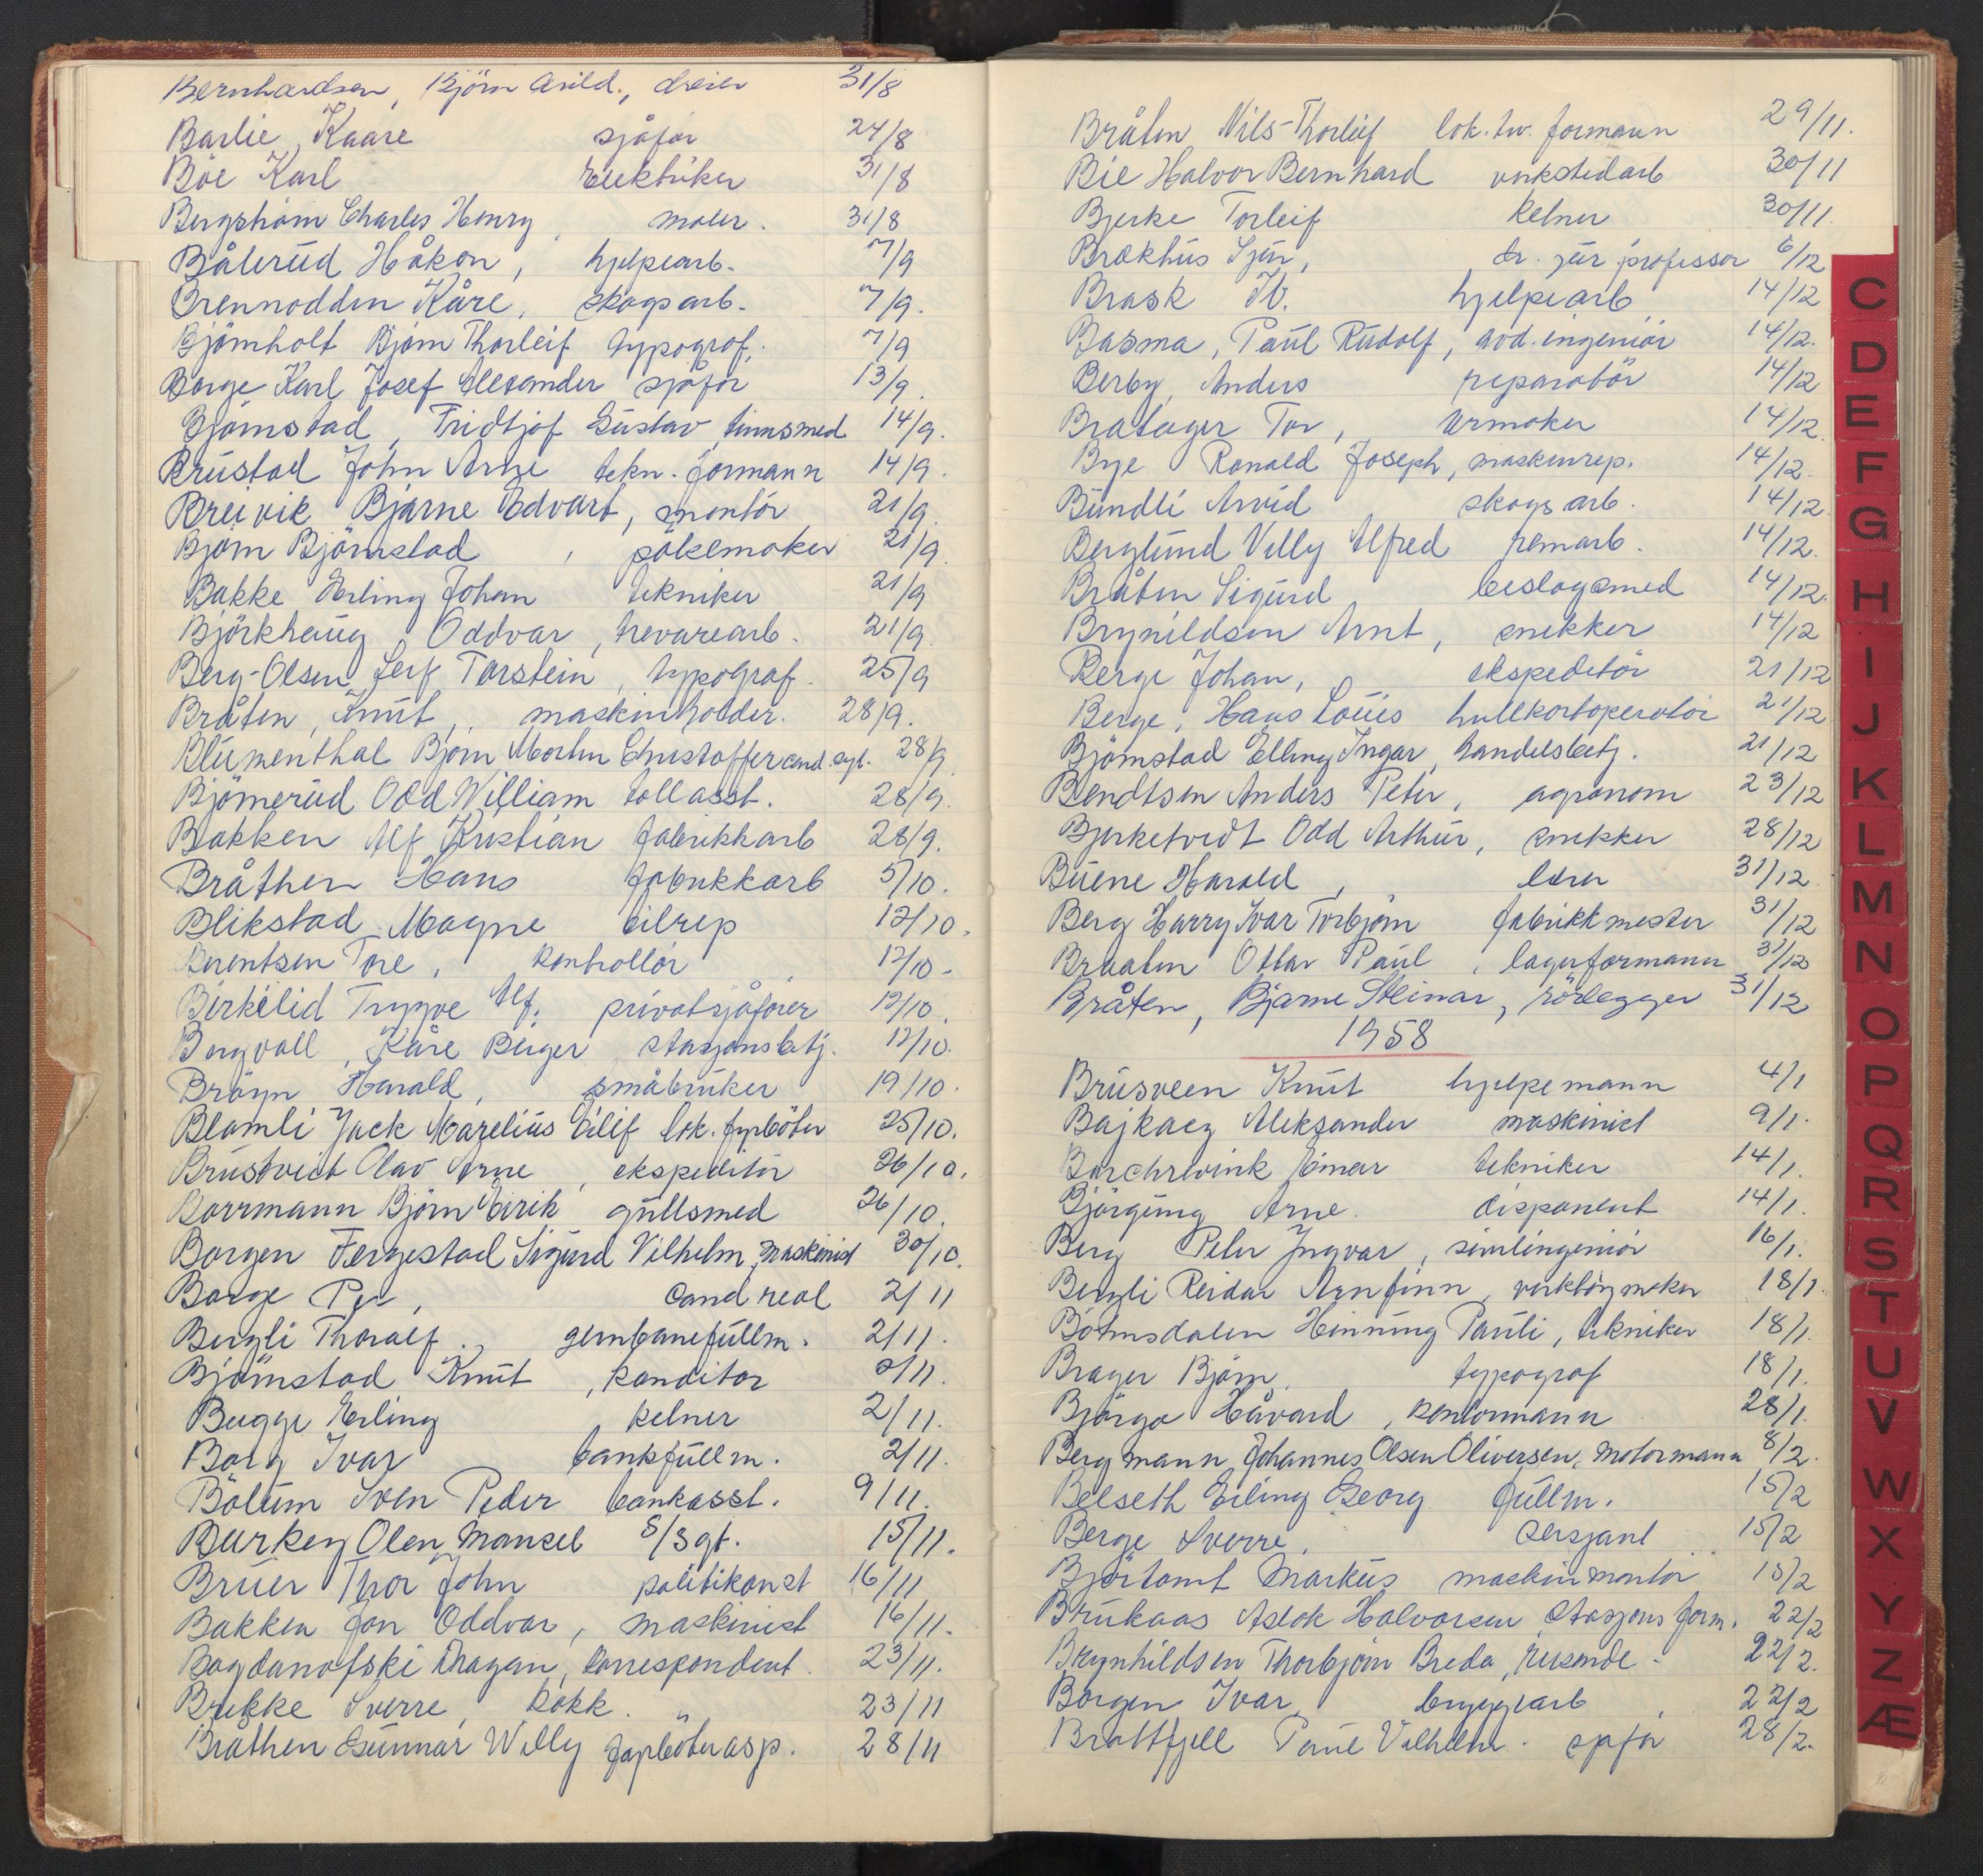 Bernhardsen, Björn Arild., dreier 31/8
Barlie, Kaare sjåför 24/8
Böe Karl Elektriker 31/8
Bergström Charles Henry, maler. 31/8
Bålerud Håkon, hjelpearb. 7/9
Brennodden Kåre, skogsarb. 7/9.
Björnholt Björn Thorleif typograf. 7/9
Borge Karl Josef Alexander sjåför 13/9.
Björnstad, Fridtjof Gustav, tinnsmed 14/9.
Brustad John Arne tekn. formann 14/9.
Breivik Bjarne Edvart, montör 21/9
Björn Björnstad, pölsemaker 21/9
Bakke Erling Johan tekniker 21/9
Björkhaug, Oddvar, trevarearb. 21/9
Berg-Olsen Leif Torstein, typograf. 25/9
Bråten, Knut, maskinholder. 28/9.
Blumenthal Björn Morten Christoffer cand. syl. 28/9
Björnerud Odd William tollasst. 28/9.
Bakken Alf Kristian fabrikkarb 28/9.
Bråthen Hans fabrikkarb 5/10.
Blikstad Magne bilrep 12/10.
Berentsen Tore, kontrollör 12/10.
Birkelid Trygve Alf. privatsjåförer 12/10.
Bergvall, Kåre Birger stasjonsbetj. 12/10.
Bröyn Harald, småbruker 19/10.
Blomli Jack Marelius Eilif lok. fyrböter 25/10.
Brustveit Olav Arne, ekspeditör 26/10.
Borrmann Björn Eirik gullsmed 26/10.
Borgen Fergestad Sigurd Vilhelm, maskinist 30/10.
Borge Per, cand real 2/11
Bergli Thoralf, jernbanefullm. 2/11.
Björnstad Knut, konditor 2/11.
Bugge Erling, kelner 2/11.
Borg Ivar bankfullm. 2/11.
Bölum Sven Peder bankasst. 9/11.
Burkey Olen Mansel S/Sgt. 15/11.
Bruer Thor John politikonst 16/11
Bakken Jon Oddvar, maskinist 16/11.
Bogdanofski Dragan, korrespondent. 23/11.
Brekke Sverre, kokk. 23/11
Bråthen Gunnar Willy fyrböterasp. 28/11
Bråten Nils-Thorleif lok. tw. formann 29/11.
Bie Halvor Bernhard verkstedarb 30/11
Bjerke Torleif kelner 30/11.
Brækhus Sjur, dr. jur professor 6/12
Brask W. hjelpearb 14/12
Basma, Paul Rudolf, avd. ingeniör 14/12.
Berby, Anders reparatör 14/12
Bratager Tor, urmaker 14/12.
Bye Ronald Joseph, maskinrep. 14/12.
Bundli Arvid skogsarb. 14/12.
Berglund Villy Alfred remarb. 14/12.
Bråten Sigurd, beslagsmed 14/12.
Brynildsen Arnt, snekker 14/12
Berge Johan, ekspeditör 21/12
Berge, Hans Louis hullkortoperatör 21/12
Björnstad Elling Ingar, handelsbetj. 21/12
Bendtsen Anders Peter, agronom 23/12
Bjerketvedt Odd Arthur, snekker 28/12
Buene Harald, lærer 31/12
Berg Harry Ivar Torbjörn fabrikkmester 31/12
Braaten Ottar Paul, lagerformann 31/12
Bråten, Bjarne Steinar, rörlegger 31/12
1958
Brusveen Knut hjelpemann 4/1
Bajkacz Aleksander maskinist 9/1.
Borchrevink Einar tekniker 14/1.
Björgung Arne. disponent 14/1.
Berg Peter Ingvar, sivilingeniör 16/1.
Bergli Reidar Arnfinn, verktöymaker 18/1.
Bömsdalen Henning Pauli, tekniker 18/1.
Brager Björn, typograf 18/1.
Björgo Håvard, kontormann 28/1.
Bergmann, Johannes Olsen Oliversen, motormann 8/2.
Belseth Erling Georg fullm. 15/2
Berge Sverre, sersjant 15/2
Björtomt Markus maskinmontör 15/2
Brukaas Aslak Halvorsen, stasjons form. 22/2
Brynhildsen Thorbjörn Breda, reisende. 22/2.
Borgen Ivar, bryggearb 22/2
Brattfjell Paul Vilhelm. sjåför 28/2.
C
D
E
F
G
H
I
J
K
L
M
N
O
P
Q
R
S
T
U
V
W
X
Y
Z
Æ